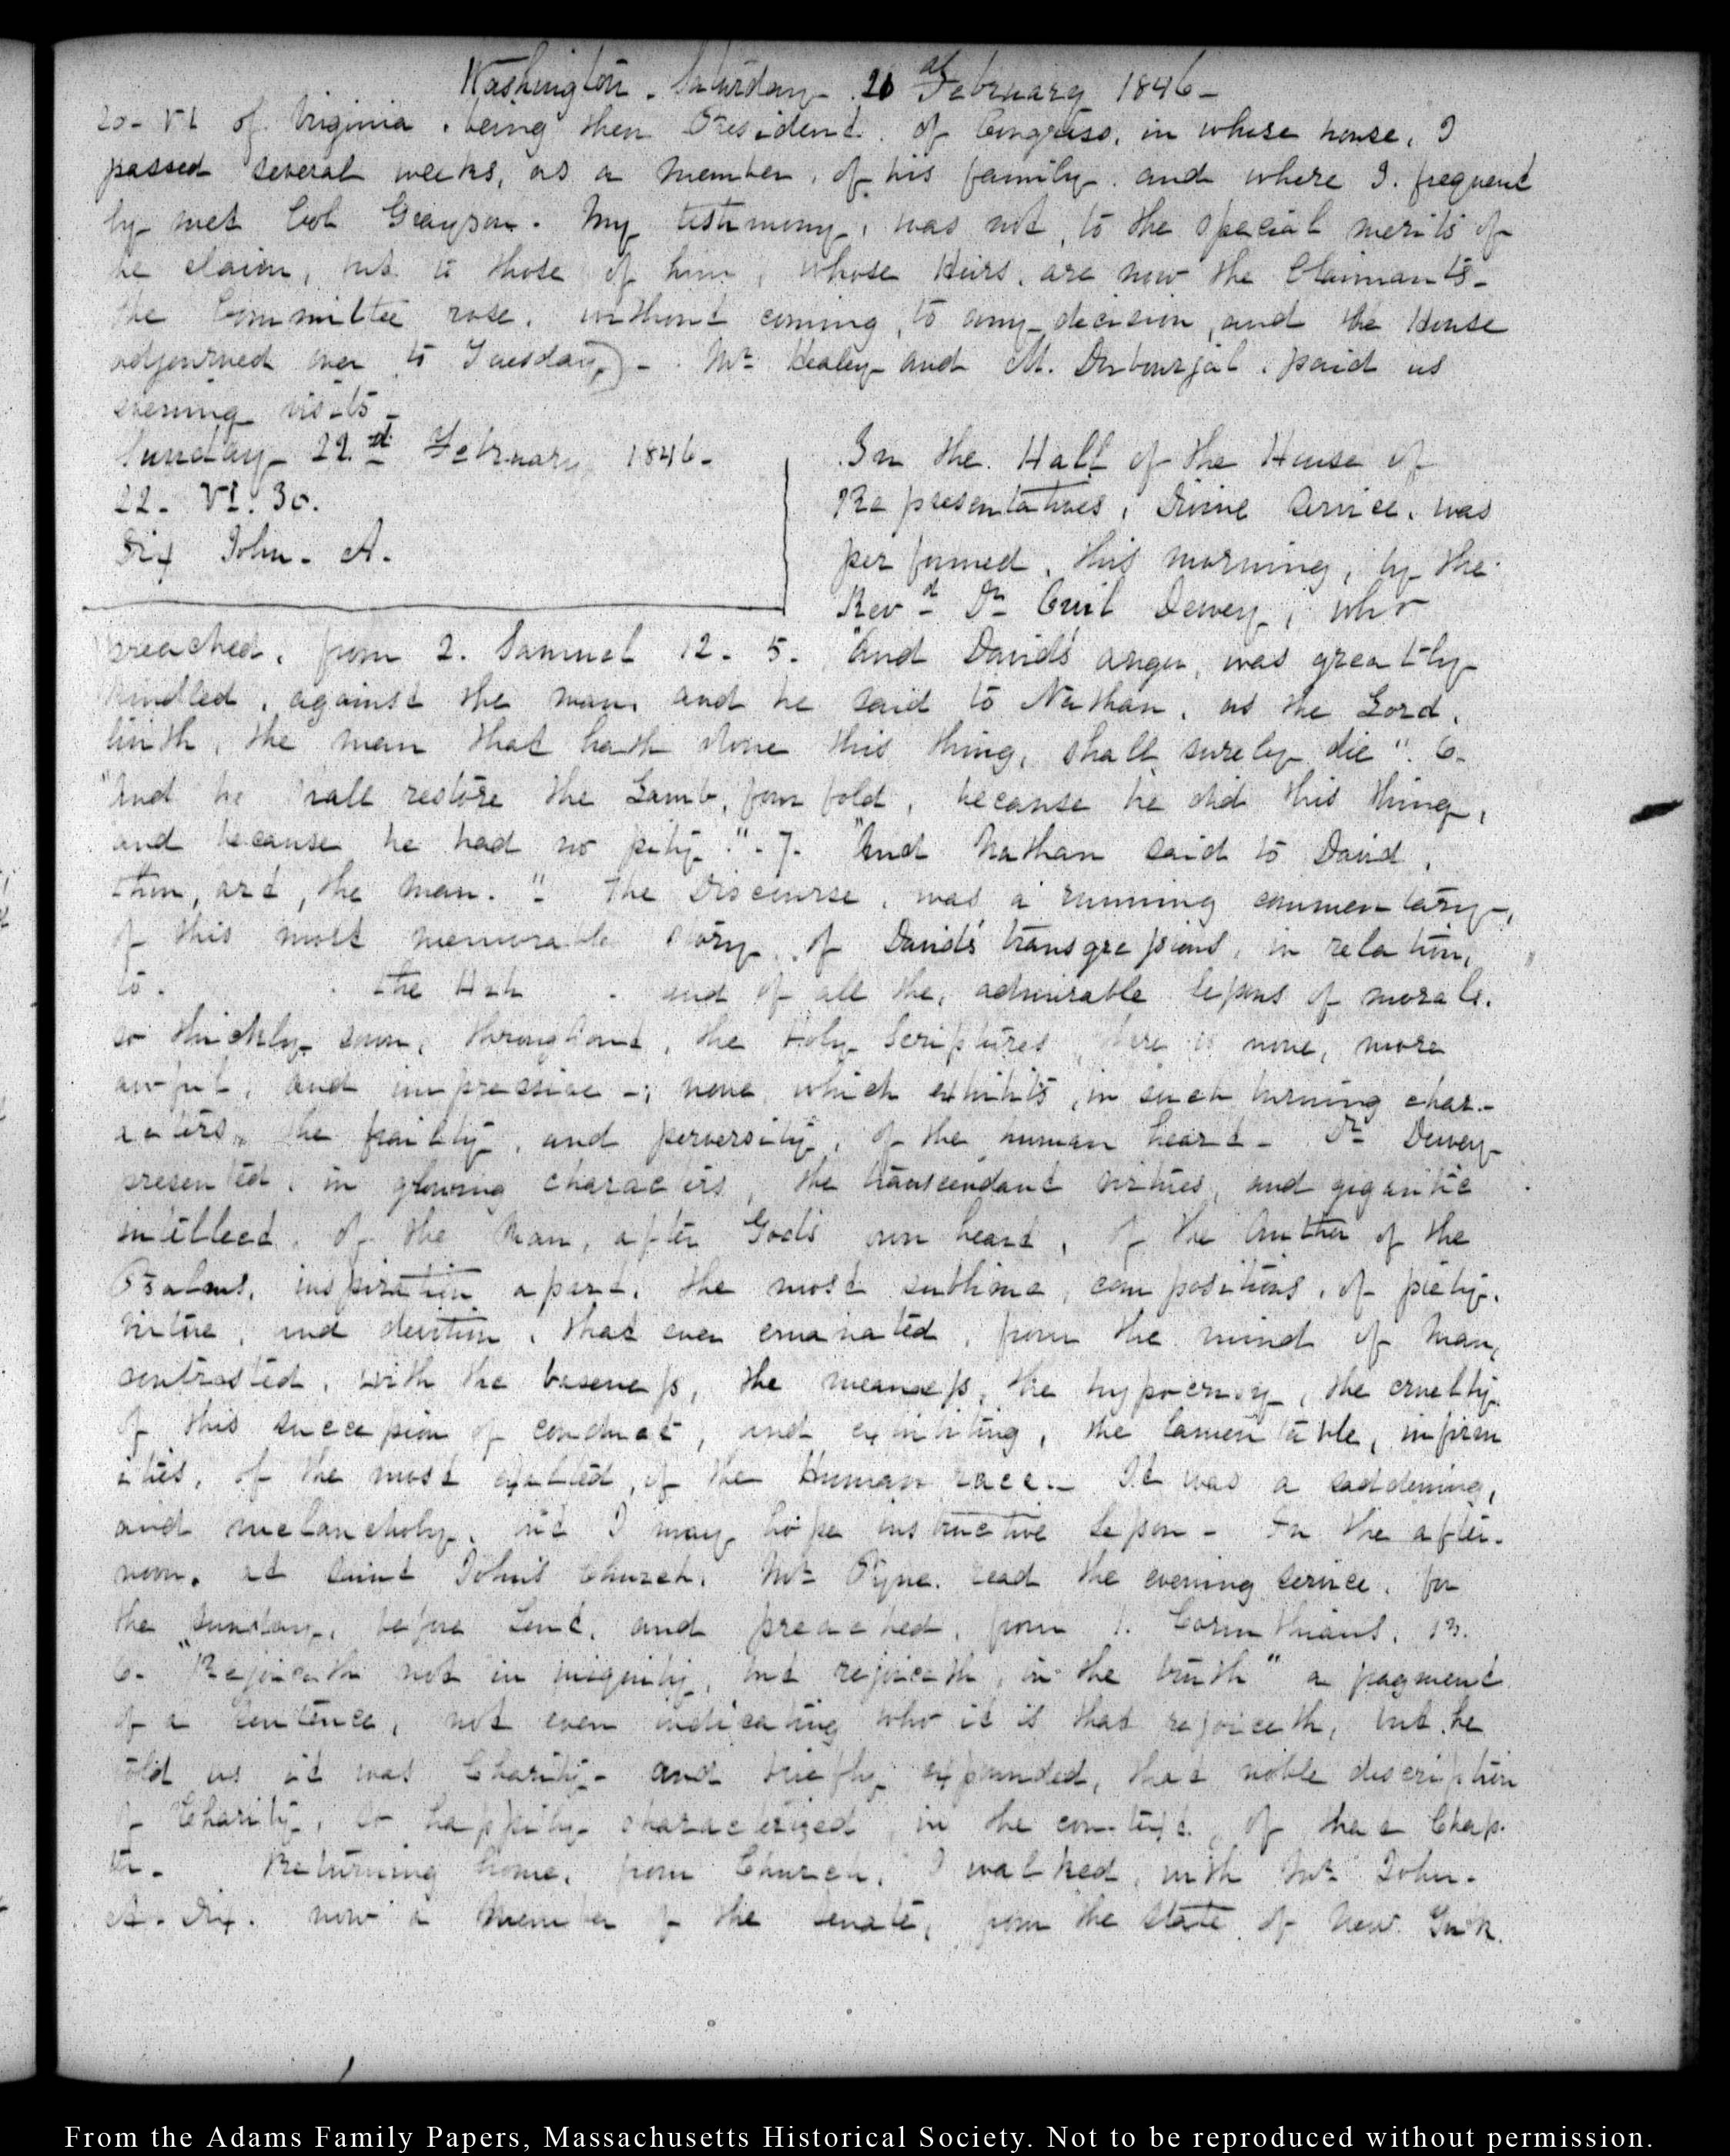 Washington. Saturday 21st February 1846-
20- VI. of Virginia, being then President of Congress, in whose house, I
passed several weeks, as a member, of his family, and where I frequent
ly met Col Grayson. My testimony, was not, to the special merits of
he claim, but to those of him, whose Heirs, are now the Claimants-
the Committee rose, without coming, to any decision, and the House
adjourned over to Tuesday)- Mr Healey and M. Durbourjal. paid us
evening visits-
Sunday 22.d February 1846-
22- VI. 30.
Dix John- A.
In the Hall of the House of
Representatives, Divine Service, was
performed, this morning, by the
Revd Dr Dewey, who
preached, from 2. Samuel 12. 5. "And David's anger, was greatly
kindled, against the man, and he said to Nathan, as the Lord,
liveth, the man that hath done this thing, shall surely die". 6-
"And he shall restore the Lamb, four fold, because he did this thing,
and because he had no pity". - 7. "And Nathan said to David,
thou, art, the man." - The Discourse, was a running commentary,
of this most memorable story, of David's transgressions, in relation,
to. the and of all the, admirable lessons of morals.
so thickly sown, throughout, the Holy Scriptures, there is none, more
awful, and impressive -; none which exhibits, in such burning char-
acters, the frailty, and perversity, of the human heart- Dr Dewey
presented, in glowing characters, the transcendant virtues, and gigantic
intellect, of the Man, after God's own heart, of the Author of the
Psalms, inspiration apart, the most sublime, compositions, of piety,
virtue, and devotion, that ever emanated, from the mind of Man,
contrasted, with the baseness, the meanness, the hypocrisy, the cruelty
of this succession of conduct, and exhibiting, the lamentable, infirm
ities, of the most exalted, of the Human race.- It was a saddening,
and melancholy, but I may hope instructive lesson- In the after-
noon, at Saint John's Church, Mr Pyne. read the evening service, for
the Sunday, before Lent, and preached, from 1. Corinthians. 13.
6- "Rejoiceth not in iniquity, but rejoiceth, in the truth" a fragment
of a sentence, not even indicating who it is that rejoiceth, but he
told us it was Charity- and briefly expounded, that noble description
of Charity, so happily characterized in the context, of that Chap-
ter- Returning home, from Church, I walked, with Mr John-
A- Dix. now a Member of the Senate, from the State of New York.
From the Adams Family Papers, Massachusetts Historical Society. Not to be reproduced without permission.